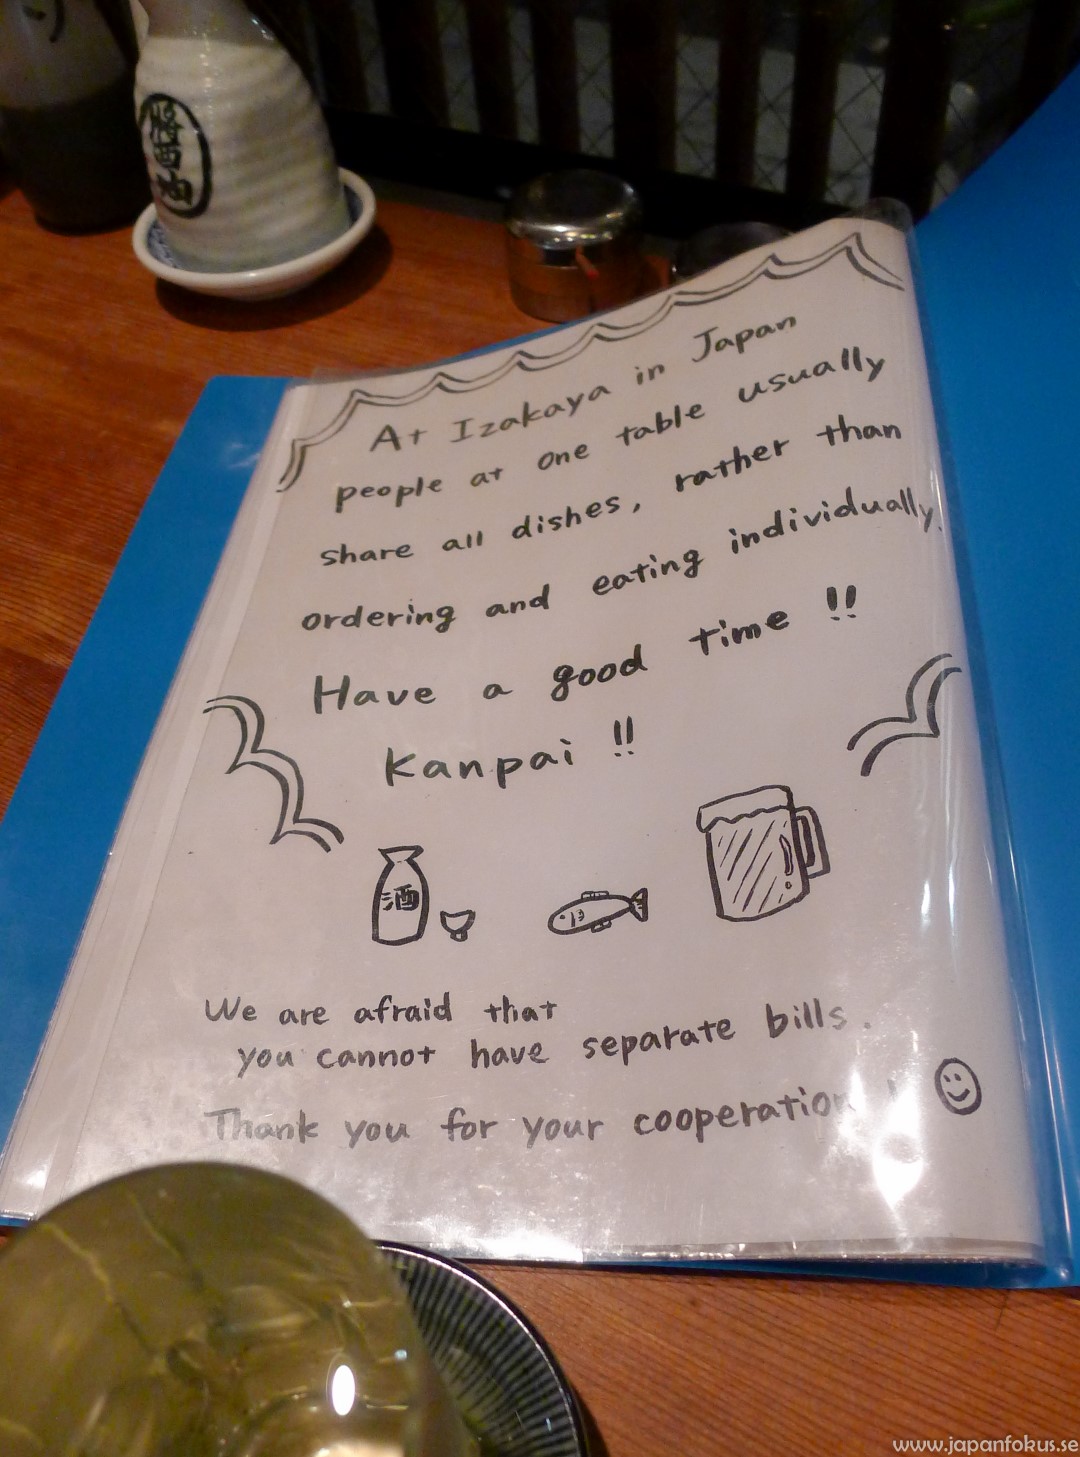 醤油
At Izakaya in Japan
people at one table usually
share all dishes, rather than
ordering and eating individually.
Have a good time !!
Kanpai !!
酒
We are afraid that
you cannot have separate bills.
Thank you for your cooperation !
www.japanfokus.se